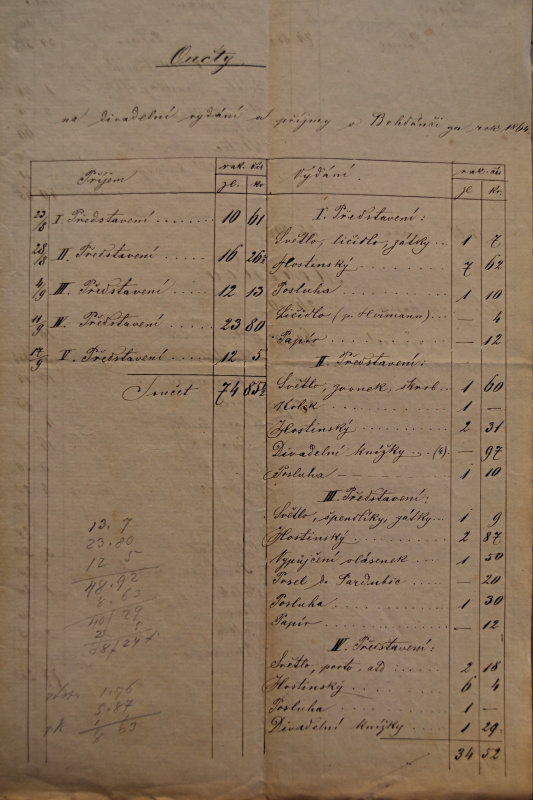 Oučty
na divadelní vydání a příjmy v Bohdánči za rok 1864.
Příjem
rak. čís.
zl. kr.
23/8 I. Představení ....... 10 61
28/8 II. Představení ..... 16 26½
4/9 III. Představení ..... 12 13
11/9 IV. Představení ..... 23 80
17/9 V. Představení ..... 12 5
Součet 74 85½
13. 7
23.80
12 5
48.92
40/29
Vydání.
rak. čís.
zl kr.
I. Představení:
Světlo, líčidlo, zátky... 1 7
Hostinský ....... 7 62
Posluha ....... 1 10
Líčidlo (p. Heřmann)... — 4
Papír ....... — 12
II. Představení:
Světlo, zvonek, škrob... 1 60
Kolek ....... 1 —
Hostinský ....... 2 31
Divadelní knížky ... (4). — 97
Posluha ....... 1 10
III. Představení:
Světlo, špendlíky, zátky... 1 9
Hostinský ....... 2 87
Vypůjčení vlásenek .... 1 50
Posel do Pardubic .... — 20
Posluha ....... 1 30
Papír ....... — 12
IV. Představení:
Světlo, porto, atd: .... 2 18
Hostinský ....... 6 4
Posluha ....... 1 —
Divadelní knížky .... 1 29.
34 52